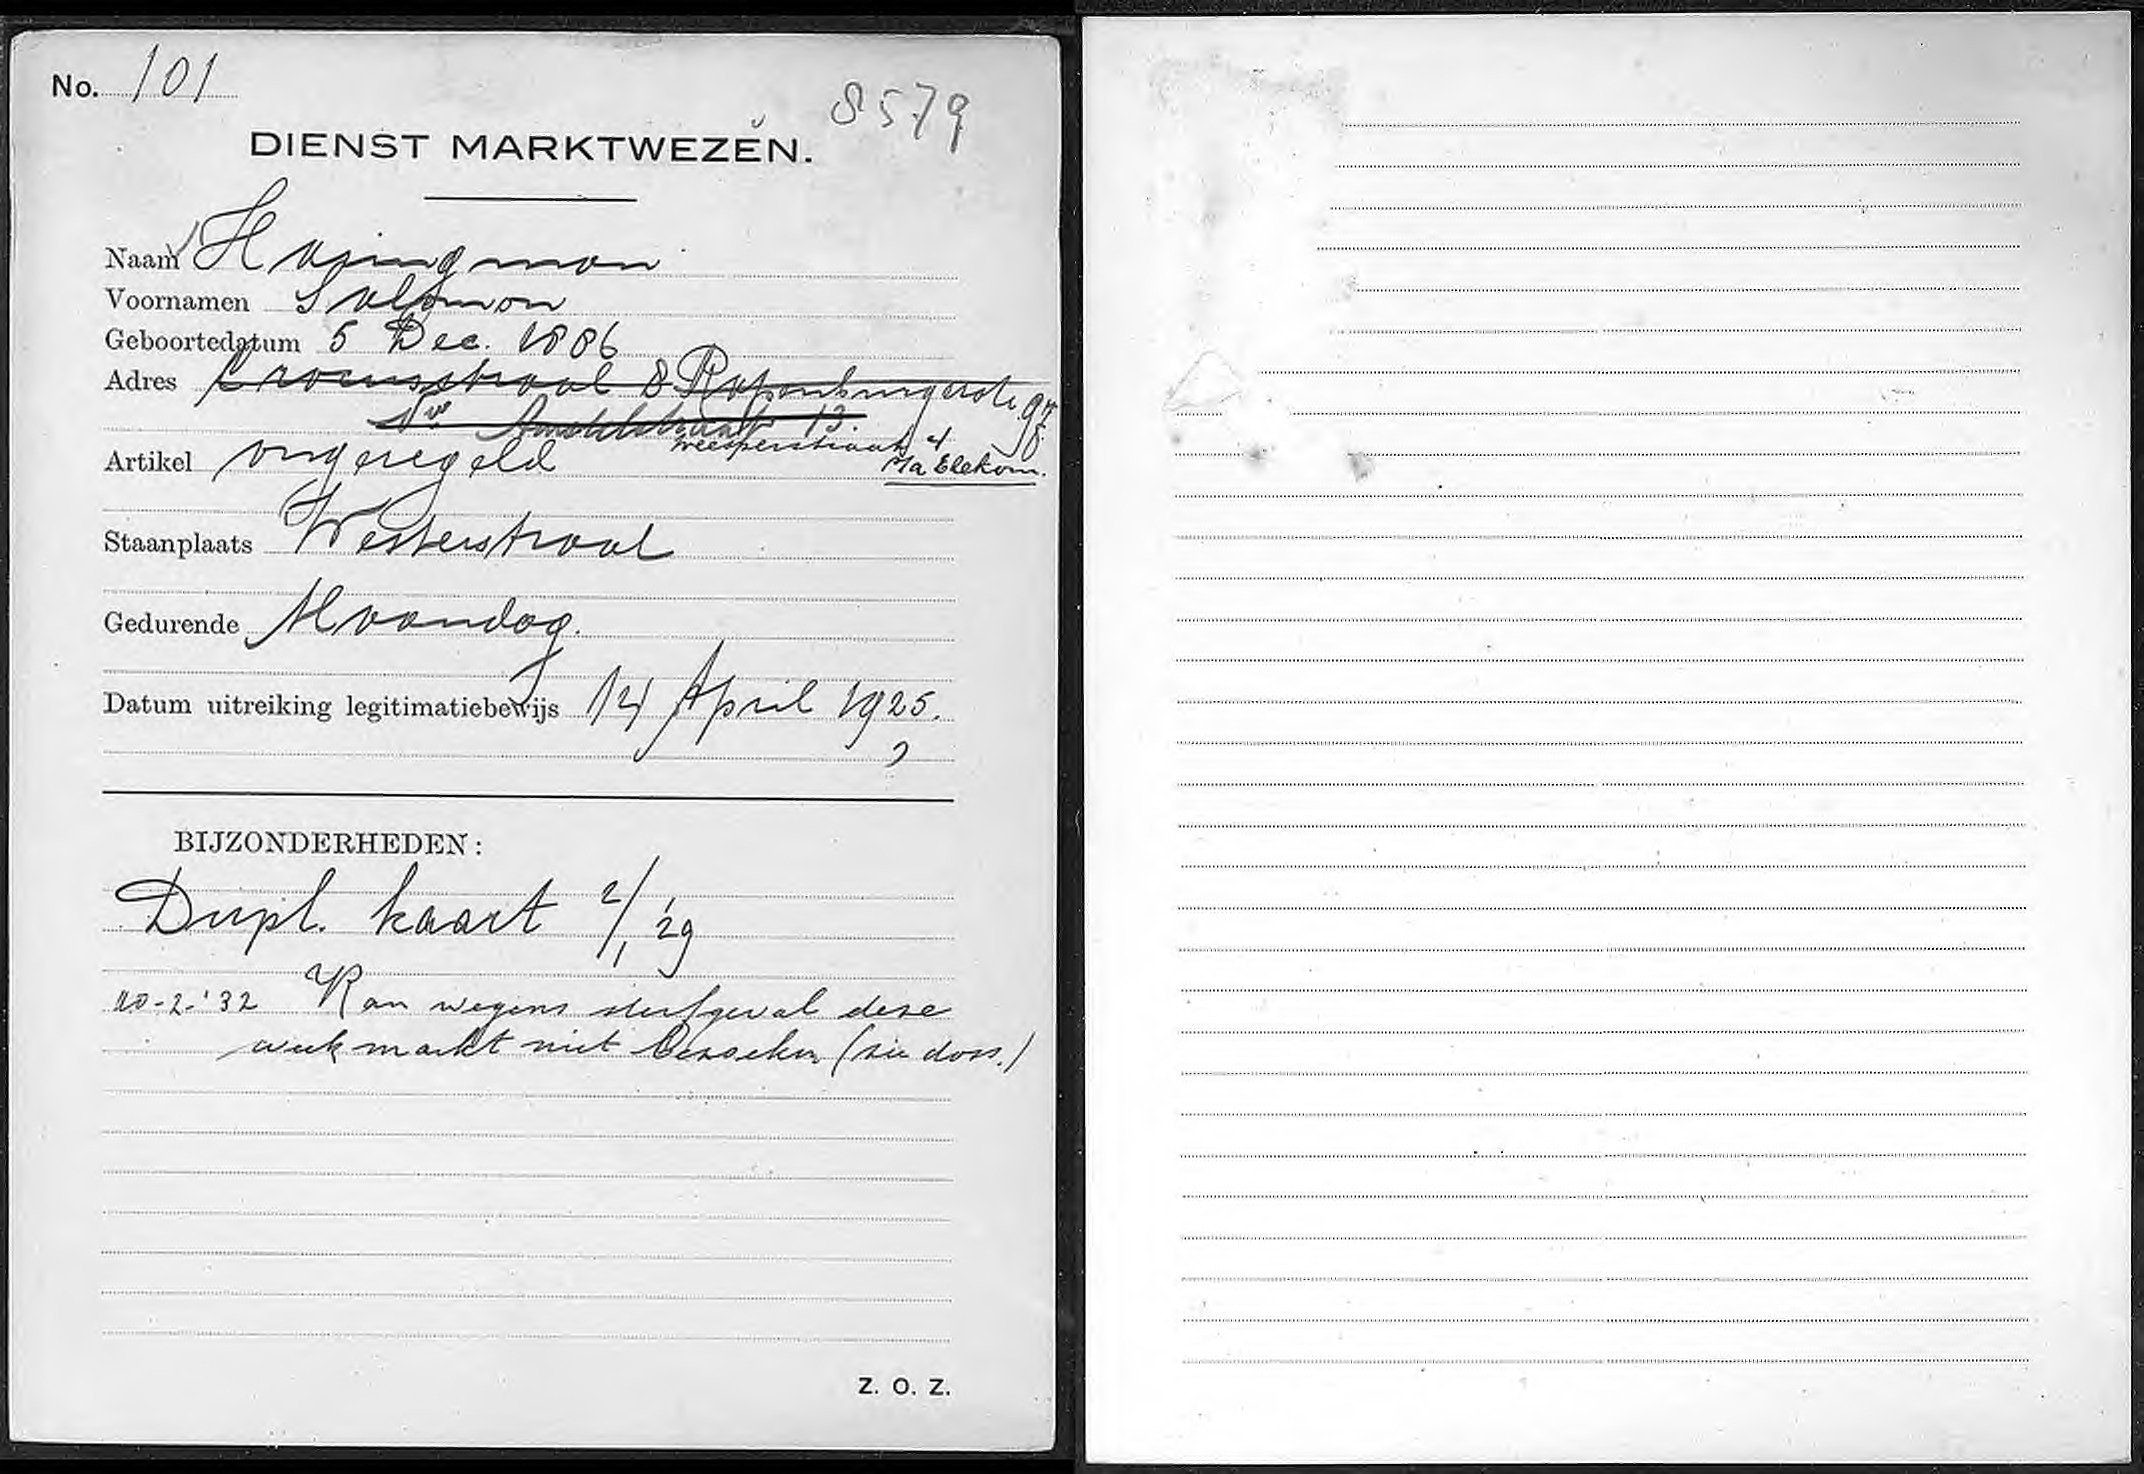 No. 101
8579
DIENST MARKTWEZEN.
Naam Huisingman
Voornamen Salomon
Geboortedatum 5 Dec. 1886
Adres 8 Rapenburgerstr 97
Nwe Amstelstraat 13.
Weesperstraat 4
Artikel ongeregeld
p/a Blekom.
Staanplaats Westerstraat
Gedurende Maandag.
Datum uitreiking legitimatiebewijs 14 April 1925.
BIJZONDERHEDEN:
Dupl. kaart 2/1 29
10-2-'32 Kan wegens sterfgeval deze
week markt niet bezoeken (zie doss.)
Z. O. Z.